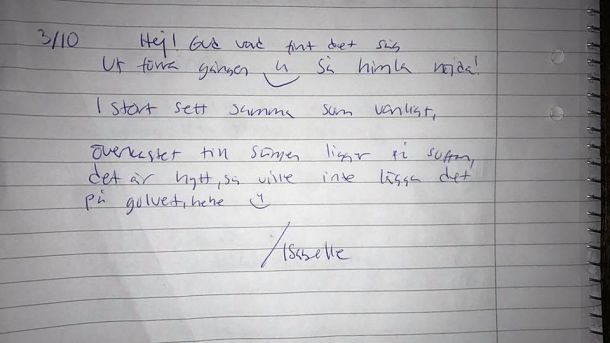 3/10 Hej! Gud vad fint det såg
ut förra gången ü Så himla nöjda!
I stort sett samma som vanligt,
överkastet till sängen ligger på soffan,
det är nytt, så ville inte lägga det
på golvet, hehe ü
/Isabelle